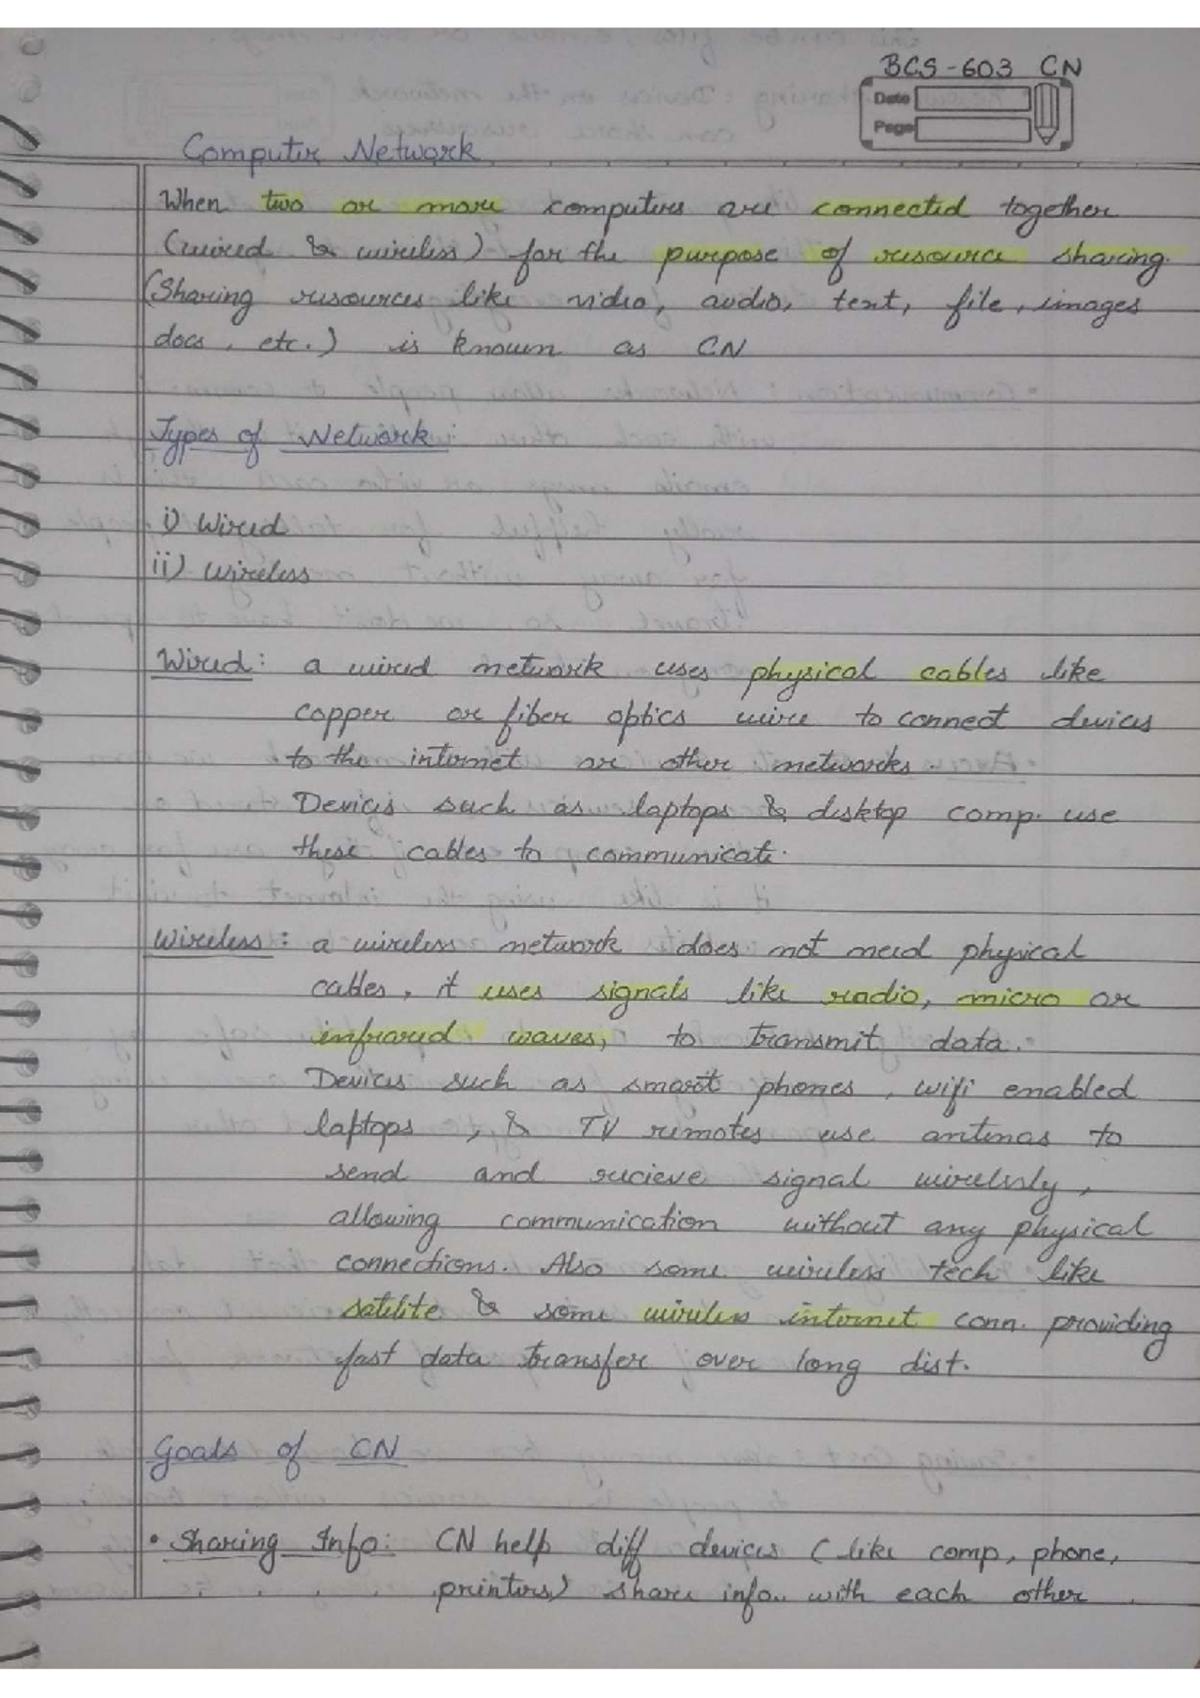 BCS-603 CN
Date
Page
Computer Network
When two or more computers are connected together
(wired & wireless) for the purpose of resource sharing.
(Sharing resources like video, audio, text, file, images
docs, etc.) is known as CN
Types of Network:
i) Wired
ii) Wireless
Wired: a wired network uses physical cables like
copper or fiber optics wire to connect devices
to the internet or other networks.
Devices such as laptops & desktop comp. use
these cables to communicate.
Wireless: a wireless network does not need physical
cables, it uses signals like radio, micro or
infrared waves, to transmit data.
Devices such as smart phones, wifi enabled
laptops, & TV remotes use antenas to
send and recieve signal wirelessly,
allowing communication without any physical
connections. Also some wireless tech like
satelite & some wireless internet conn. providing
fast data transfer over long dist.
Goals of CN
• Sharing Info: CN help diff devices (like comp, phone,
printers) share info. with each other